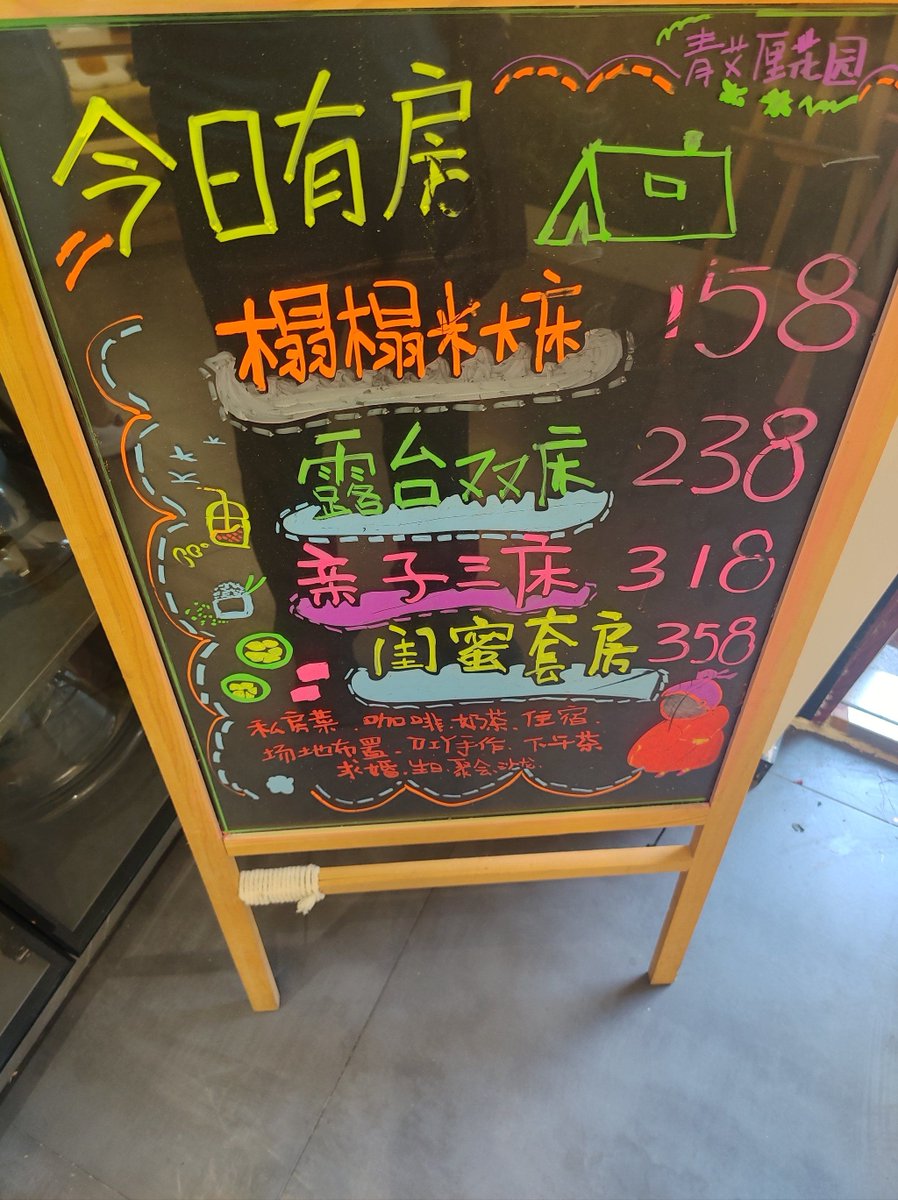 青艾厘花园
今日有房
榻榻米大床 158
露台双床 238
亲子三床 318
闺蜜套房 358
私房菜.咖啡.奶茶.住宿.
场地布置.DIY手作.下午茶
求婚.生日.聚会.沙龙.